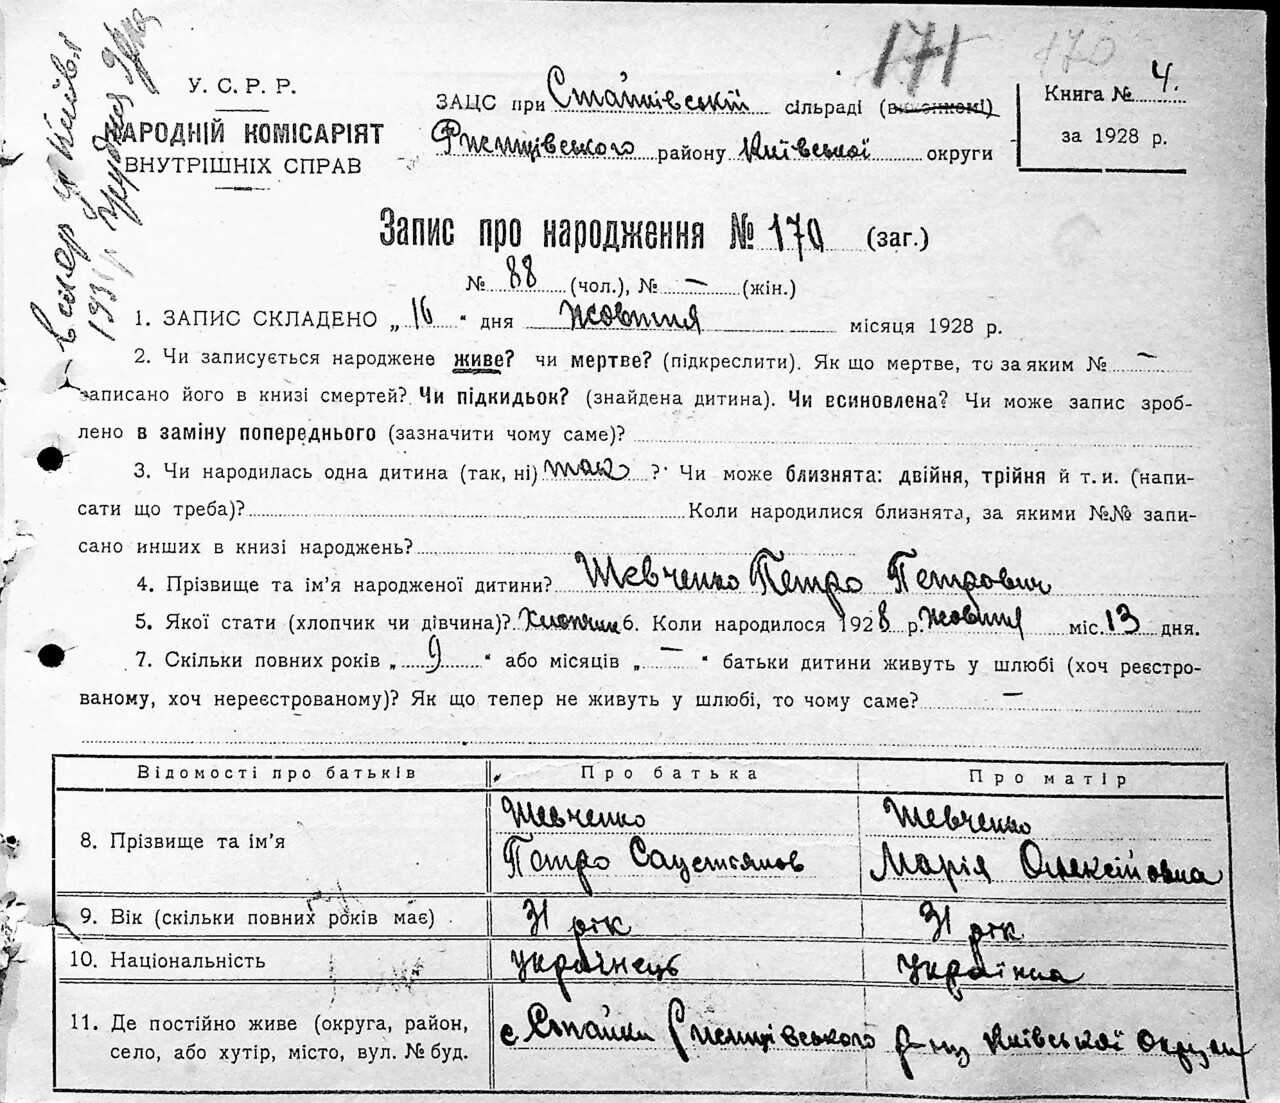 171 170
У. С. Р. Р.
НАРОДНІЙ КОМІСАРІЯТ
ВНУТРІШНІХ СПРАВ
ЗАЦС при Стайцівській сільраді (виконкомі)
Ржищівського району Київської округи
Книга № 4.
за 1928 р.
в Києві
193 грудня
Запис про народження № 170 (заг.)
№ 88 (чол.), № — (жін.)
1. ЗАПИС СКЛАДЕНО „16“ дня жовтня місяця 1928 р.
2. Чи записується народжене живе? чи мертве? (підкреслити). Як що мертве, то за яким № —
записано його в книзі смертей? Чи підкидьок? (знайдена дитина). Чи всиновлена? Чи може запис зроб-
лено в заміну попереднього (зазначити чому саме)?
3. Чи народилась одна дитина (так, ні) так ? Чи може близнята: двійня, трійня й т. и. (напи-
сати що треба)? Коли народилися близнята, за якими №№ запи-
сано инших в книзі народжень?
4. Прізвище та ім’я народженої дитини? Шевченко Петро Петрович
5. Якої стати (хлопчик чи дівчина)? Хлопчик 6. Коли народилося 1928 р. жовтня міс. 13 дня.
7. Скільки повних років „9“ або місяців „—“ батьки дитини живуть у шлюбі (хоч реєстро-
ваному, хоч нереєстрованому)? Як що тепер не живуть у шлюбі, то чому саме? —
Відомості про батьків Про батька Про матір
8. Прізвище та ім’я Шевченко Петро Саустянов Шевченко Марія Олексійовна
9. Вік (скільки повних років має) 31 рік 31 рік
10. Національність українець українка
11. Де постійно живе (округа, район,
село, або хутір, місто, вул. № буд. с Стайки Ржищівського р-ну Київської Округи